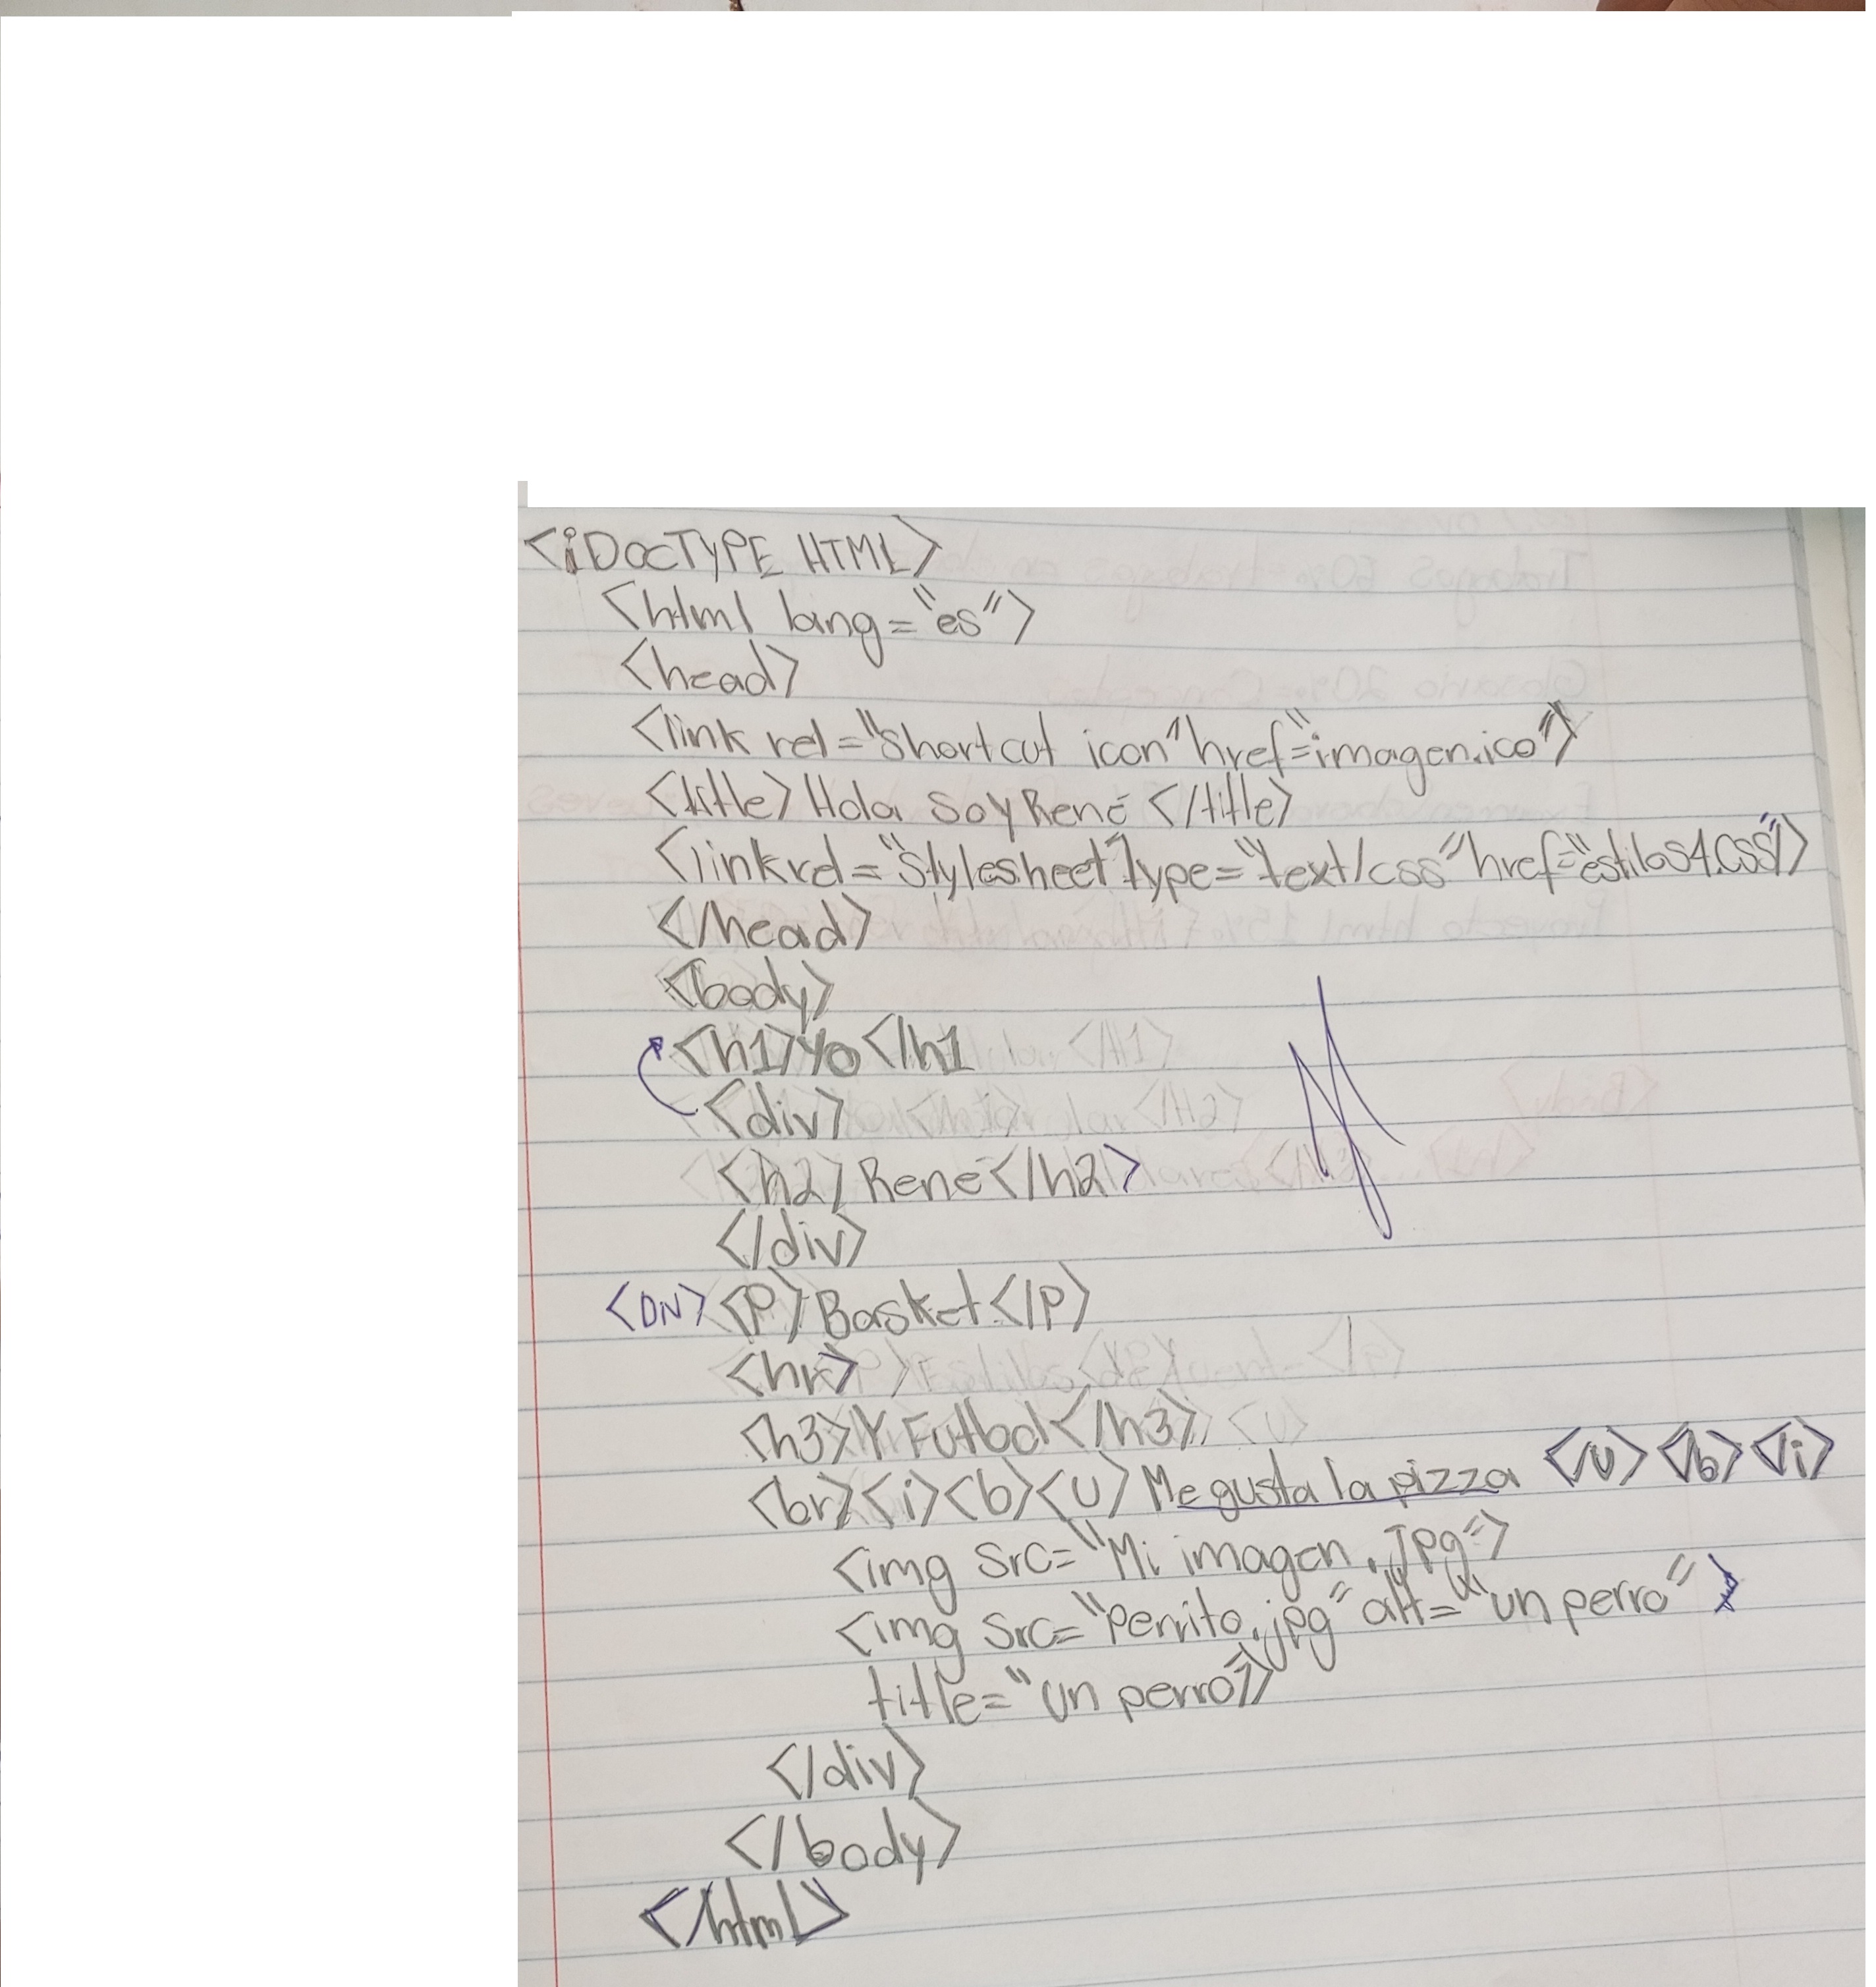 <¡DOCTYPE HTML>
<html lang="es">
<head>
<link rel="Shortcut icon" href="imagen.ico">
<title>Hola soy René </title>
<link rel="stylesheet" Type="text/css" href="estilos4.css">
</head>
<body>
<h1>Yo</h1
<div>
<h2>René</h2>
</div>
<DIV> <P>Basket</P>
<hr>
<h3>Y Futbol</h3>
<br><i><b><u>Me gusta la pizza </u></b></i>
<img Src="Mi imagen.Jpg">
<img Src="Perrito.jpg" alt="un perro"
title="Un perro">
</div>
</body>
</html>